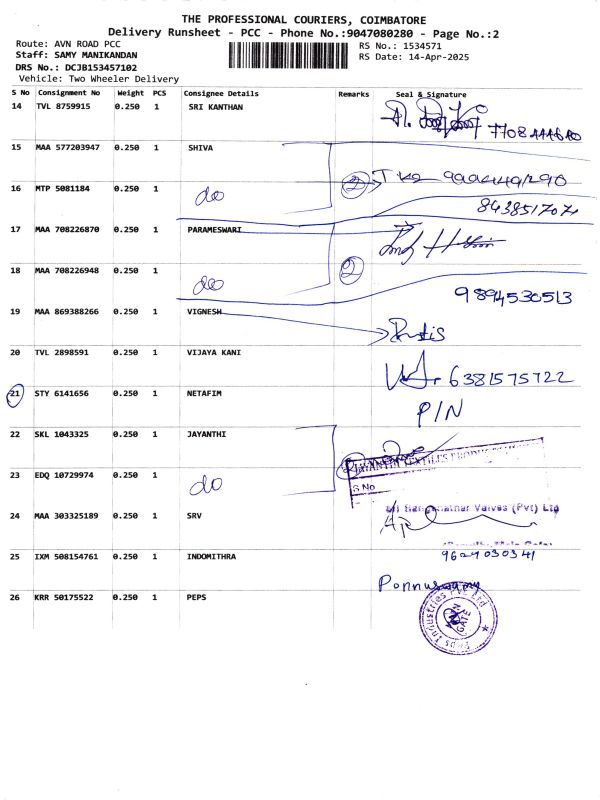 THE PROFESSIONAL COURIERS, COIMBATORE
Delivery Runsheet - PCC - Phone No.:9047080280 - Page No.:2
Route: AVN ROAD PCC
RS No.: 1534571
Staff: SAMY MANIKANDAN
RS Date: 14-Apr-2025
DRS No.: DCJB153457102
Vehicle: Two Wheeler Delivery
S No Consignment No Weight PCS Consignee Details Remarks Seal & Signature
14 TVL 8759915 0.250 1 SRI KANTHAN
15 MAA 577203947 0.250 1 SHIVA
16 MTP 5081184 0.250 1 do 2
8438517071
17 MAA 708226870 0.250 1 PARAMESWARI
18 MAA 708226948 0.250 1 do 2
9894530513
19 MAA 869388266 0.250 1 VIGNESH
20 TVL 2898591 0.250 1 VIJAYA KANI
6381575722
21 STY 6141656 0.250 1 NETAFIM
P/N
22 SKL 1043325 0.250 1 JAYANTHI
23 EDQ 10729974 0.250 1 do
S No
24 MAA 303325189 0.250 1 SRV
Valves (Pvt) Ltd
25 IXM 508154761 0.250 1 INDOMITHRA
9629030341
Ponnusamy
26 KRR 50175522 0.250 1 PEPS
Peps Industries Pvt Ltd
MAIN GATE